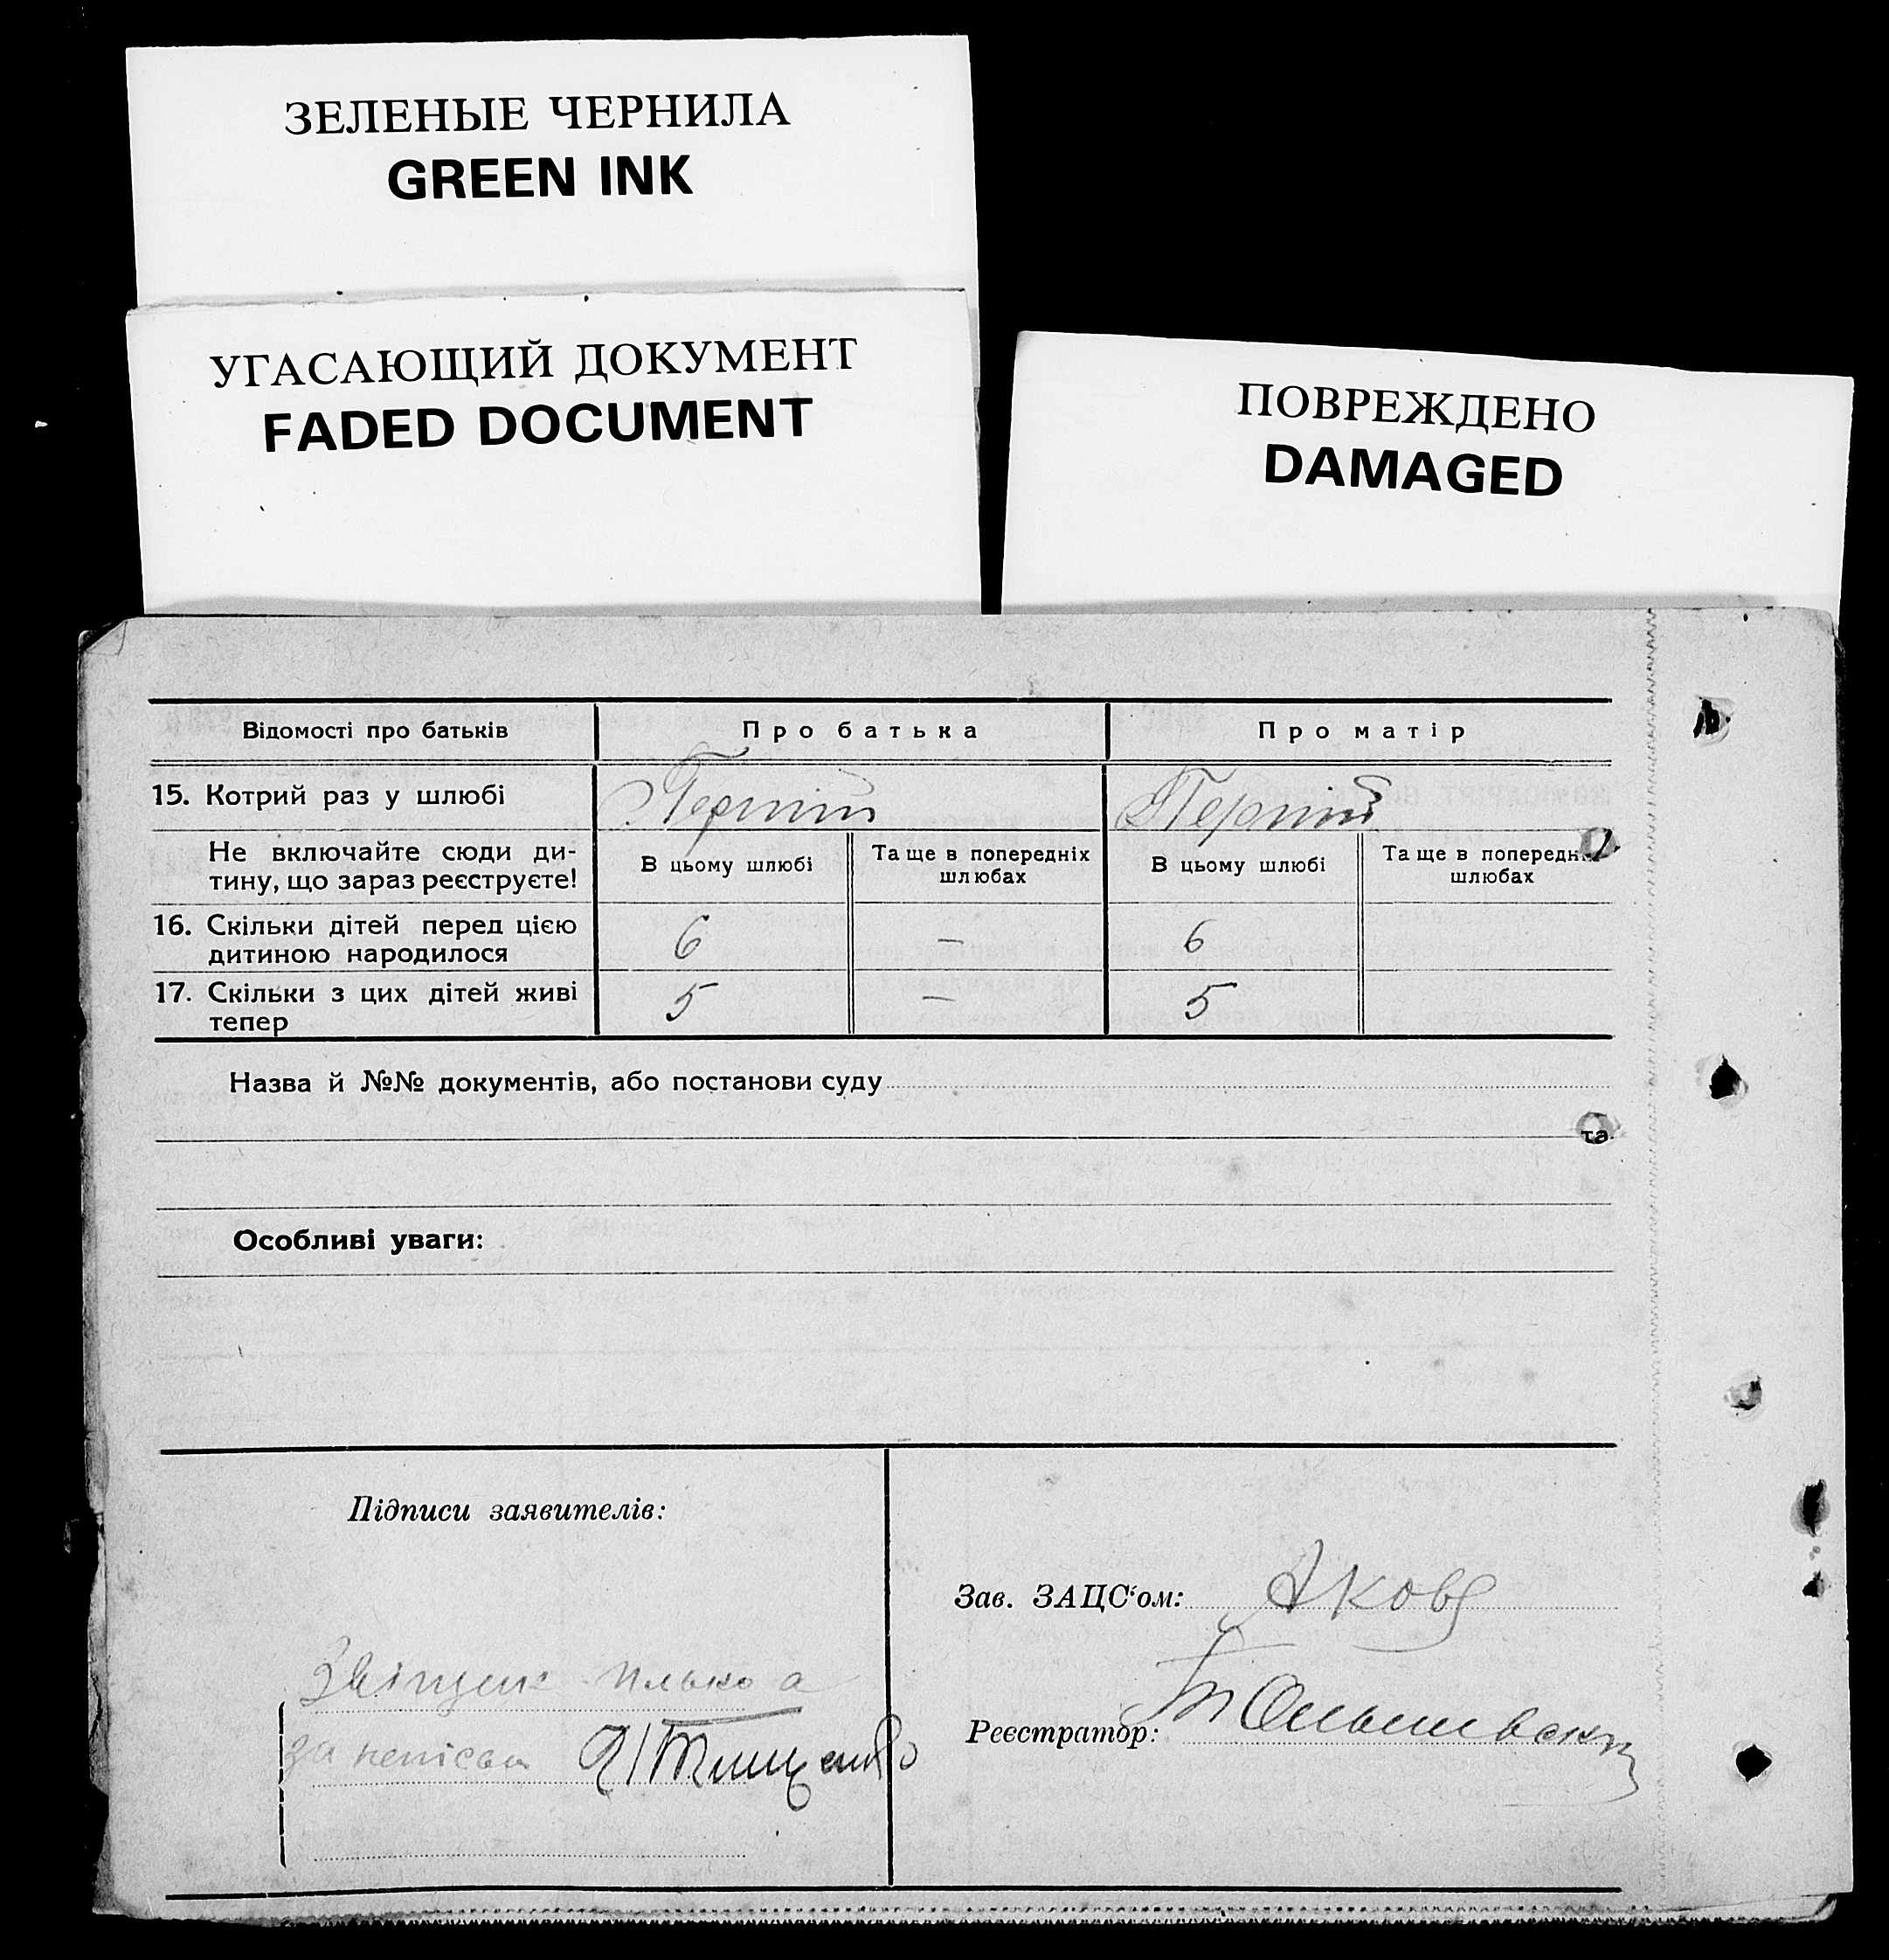 ЗЕЛЕНЫЕ ЧЕРНИЛА
GREEN INK
УГАСАЮЩИЙ ДОКУМЕНТ
FADED DOCUMENT
ПОВРЕЖДЕНО
DAMAGED
Відомості про батьків Про батька Про матір
15. Котрий раз у шлюбі Перший Перший
Не включайте сюди ди-
тину, що зараз реєструєте!
В цьому шлюбі
Та ще в попередніх
шлюбах
В цьому шлюбі
Та ще в попередн
шлюбах
16. Скільки дітей перед цією
дитиною народилося
6 — 6
17. Скільки з цих дітей живі
тепер
5 — 5
Назва й №№ документів, або постанови суду
та
Особливі уваги:
Підписи заявителів:
Тищенко
Зав. ЗАЦС'ом:
Реєстратор: